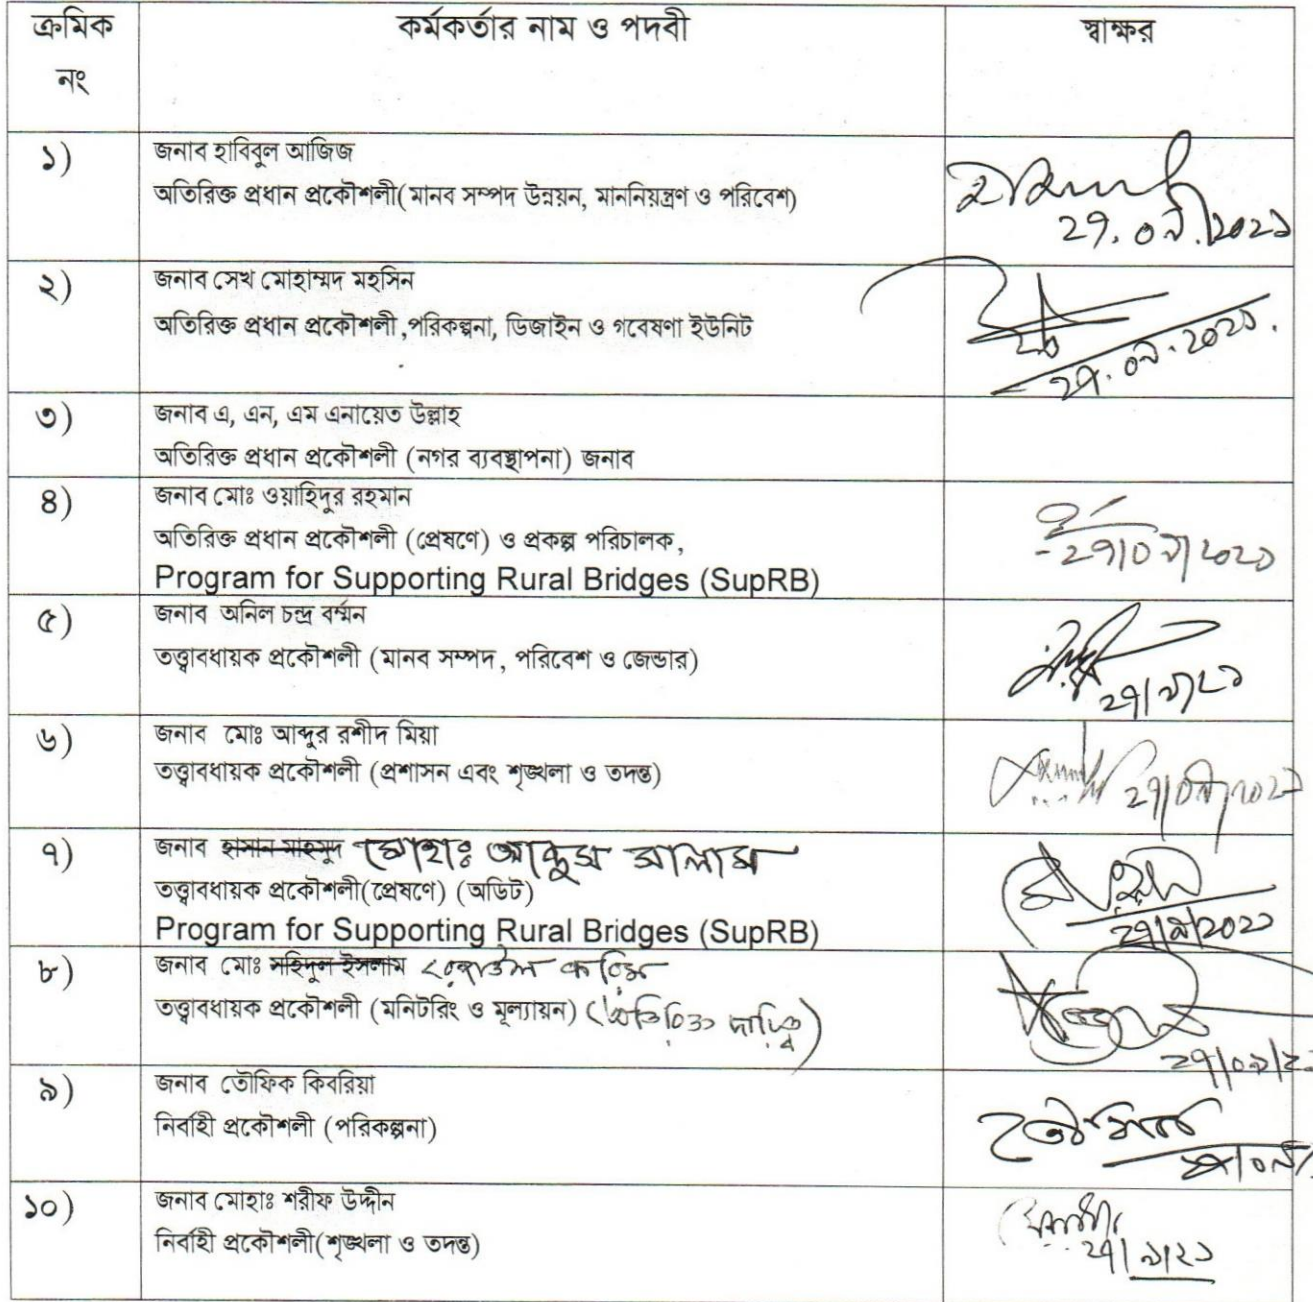 ক্রমিক নং কর্মকর্তার নাম ও পদবী স্বাক্ষর
১) জনাব হাবিবুল আজিজ
অতিরিক্ত প্রধান প্রকৌশলী(মানব সম্পদ উন্নয়ন, মাননিয়ন্ত্রণ ও পরিবেশ)
২৭.০৯.২০২১
২) জনাব সেখ মোহাম্মদ মহসিন
অতিরিক্ত প্রধান প্রকৌশলী ,পরিকল্পনা, ডিজাইন ও গবেষণা ইউনিট
২৭.০৯.২০২১.
৩) জনাব এ, এন, এম এনায়েত উল্লাহ
অতিরিক্ত প্রধান প্রকৌশলী (নগর ব্যবস্থাপনা) জনাব
৪) জনাব মোঃ ওয়াহিদুর রহমান
অতিরিক্ত প্রধান প্রকৌশলী (প্রেষণে) ও প্রকল্প পরিচালক,
২৭/০৯/২০২১
Program for Supporting Rural Bridges (SupRB)
৫) জনাব অনিল চন্দ্র বর্ম্মন
তত্ত্বাবধায়ক প্রকৌশলী (মানব সম্পদ, পরিবেশ ও জেন্ডার)
২৭/৯/২১
৬) জনাব মোঃ আব্দুর রশীদ মিয়া
তত্ত্বাবধায়ক প্রকৌশলী (প্রশাসন এবং শৃঙ্খলা ও তদন্ত)
২৭/০৯/২০২১
৭) জনাব হাসান মাহমুদ মোহাঃ আব্দুস সালাম
তত্ত্বাবধায়ক প্রকৌশলী(প্রেষণে) (অডিট)
Program for Supporting Rural Bridges (SupRB)
২৭/৯/২০২১
৮) জনাব মোঃ সহিদুল ইসলাম রেজাউল করিম
তত্ত্বাবধায়ক প্রকৌশলী (মনিটরিং ও মূল্যায়ন) (অতিরিক্ত দায়িত্ব)
২৭/০৯/২১
৯) জনাব তৌফিক কিবরিয়া
নির্বাহী প্রকৌশলী (পরিকল্পনা)
১০) জনাব মোহাঃ শরীফ উদ্দীন
নির্বাহী প্রকৌশলী(শৃঙ্খলা ও তদন্ত)
২৭/৯/২১